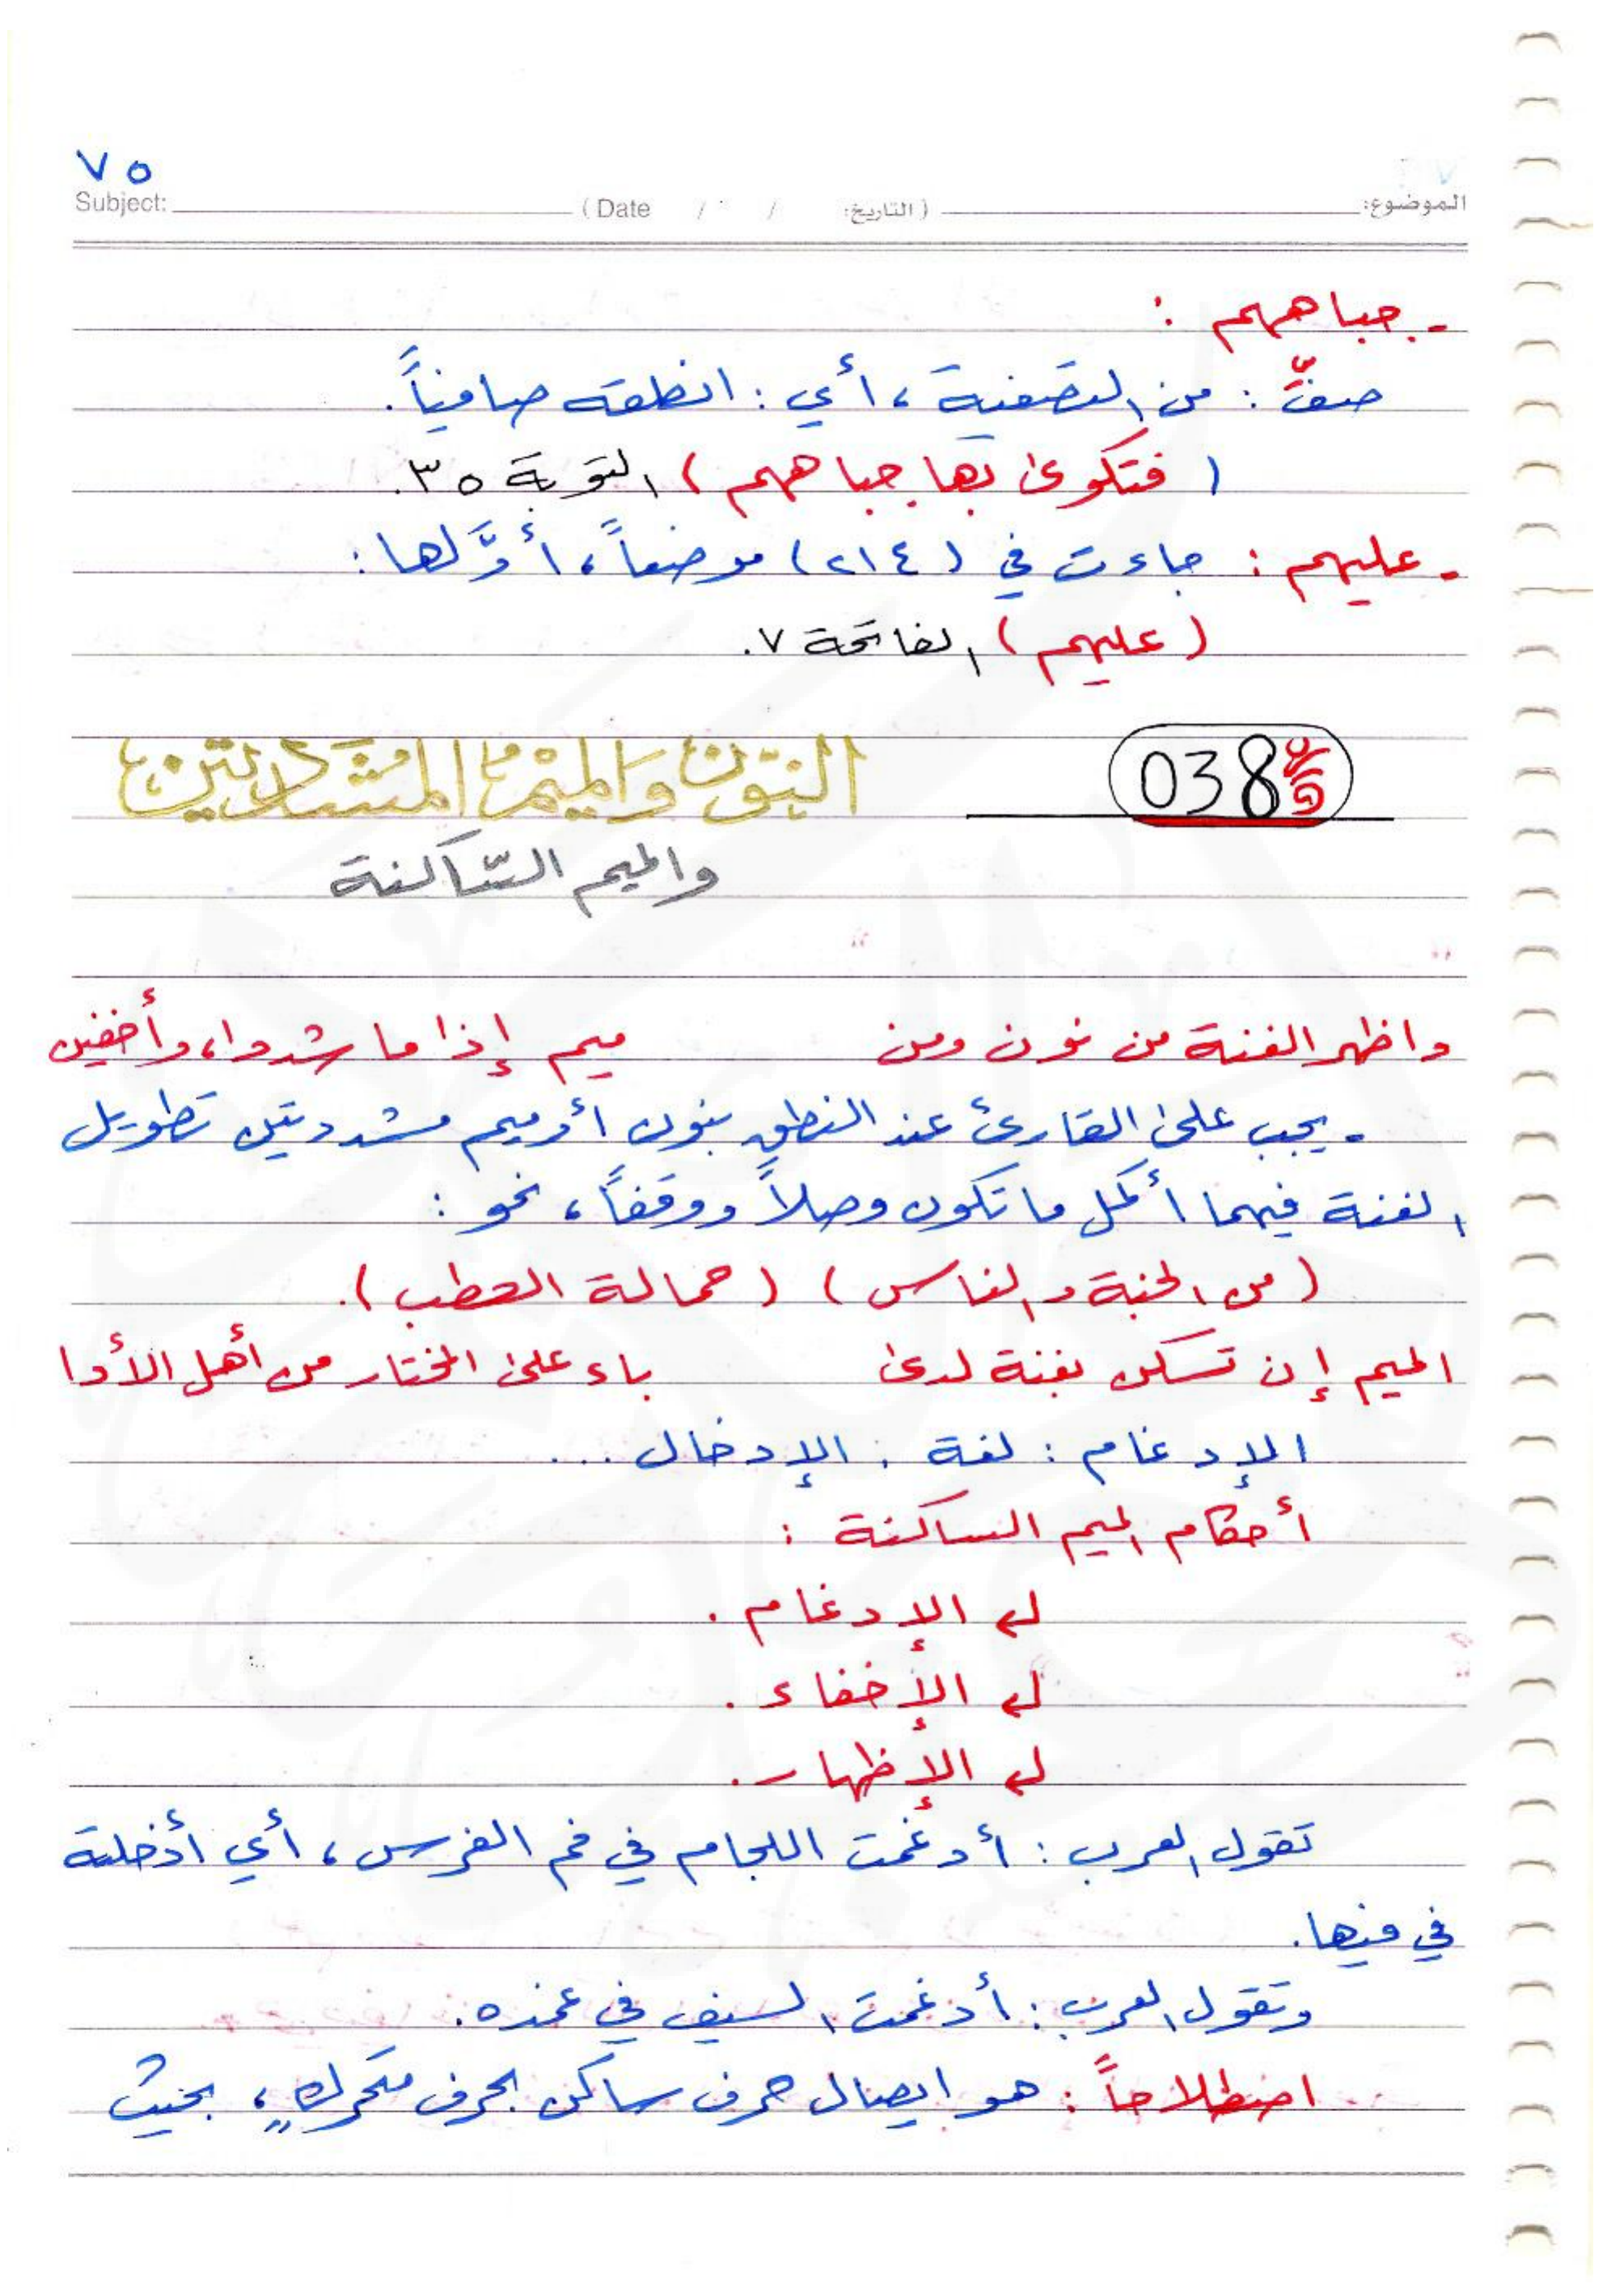 ٧٥
Subject: (Date / / التاريخ:) الموضوع:
- جباههم :
صفِّ : من التصفية ، أي : انطقه صافياً.
( فتكوى بها جباههم ) التوبة ٣٥.
- عليهم : جاءت في (٢١٤) موضعاً ، أوَّلها :
( عليهم ) الفاتحة ٧.
038
النّون والميم المشدّدتين
والميم السّاكنة
واظهر الغنة من نون ومن ميم إذا ما شددا، وأخفين
- يجب على القارئ عند النطق بنون أو ميم مشددتين تطويل
الغنة فيهما أكمل ما تكون وصلاً ووقفاً ، نحو :
( من الجنة والناس ) ( حمالة الحطب ).
الميم إن تسكن بغنة لدى باء على المختار من أهل الأدا
الإدغام : لغة : الإدخال ...
أحكام الميم الساكنة :
الإدغام .
الإخفاء .
الإظهار .
تقول العرب : أدغمت اللجام في فم الفرس ، أي أدخلته
في فيها.
وتقول العرب : أدغمت السيف في غمده.
اصطلاحاً : هو ايصال حرف ساكن بحرف متحركٍ ، بحيث